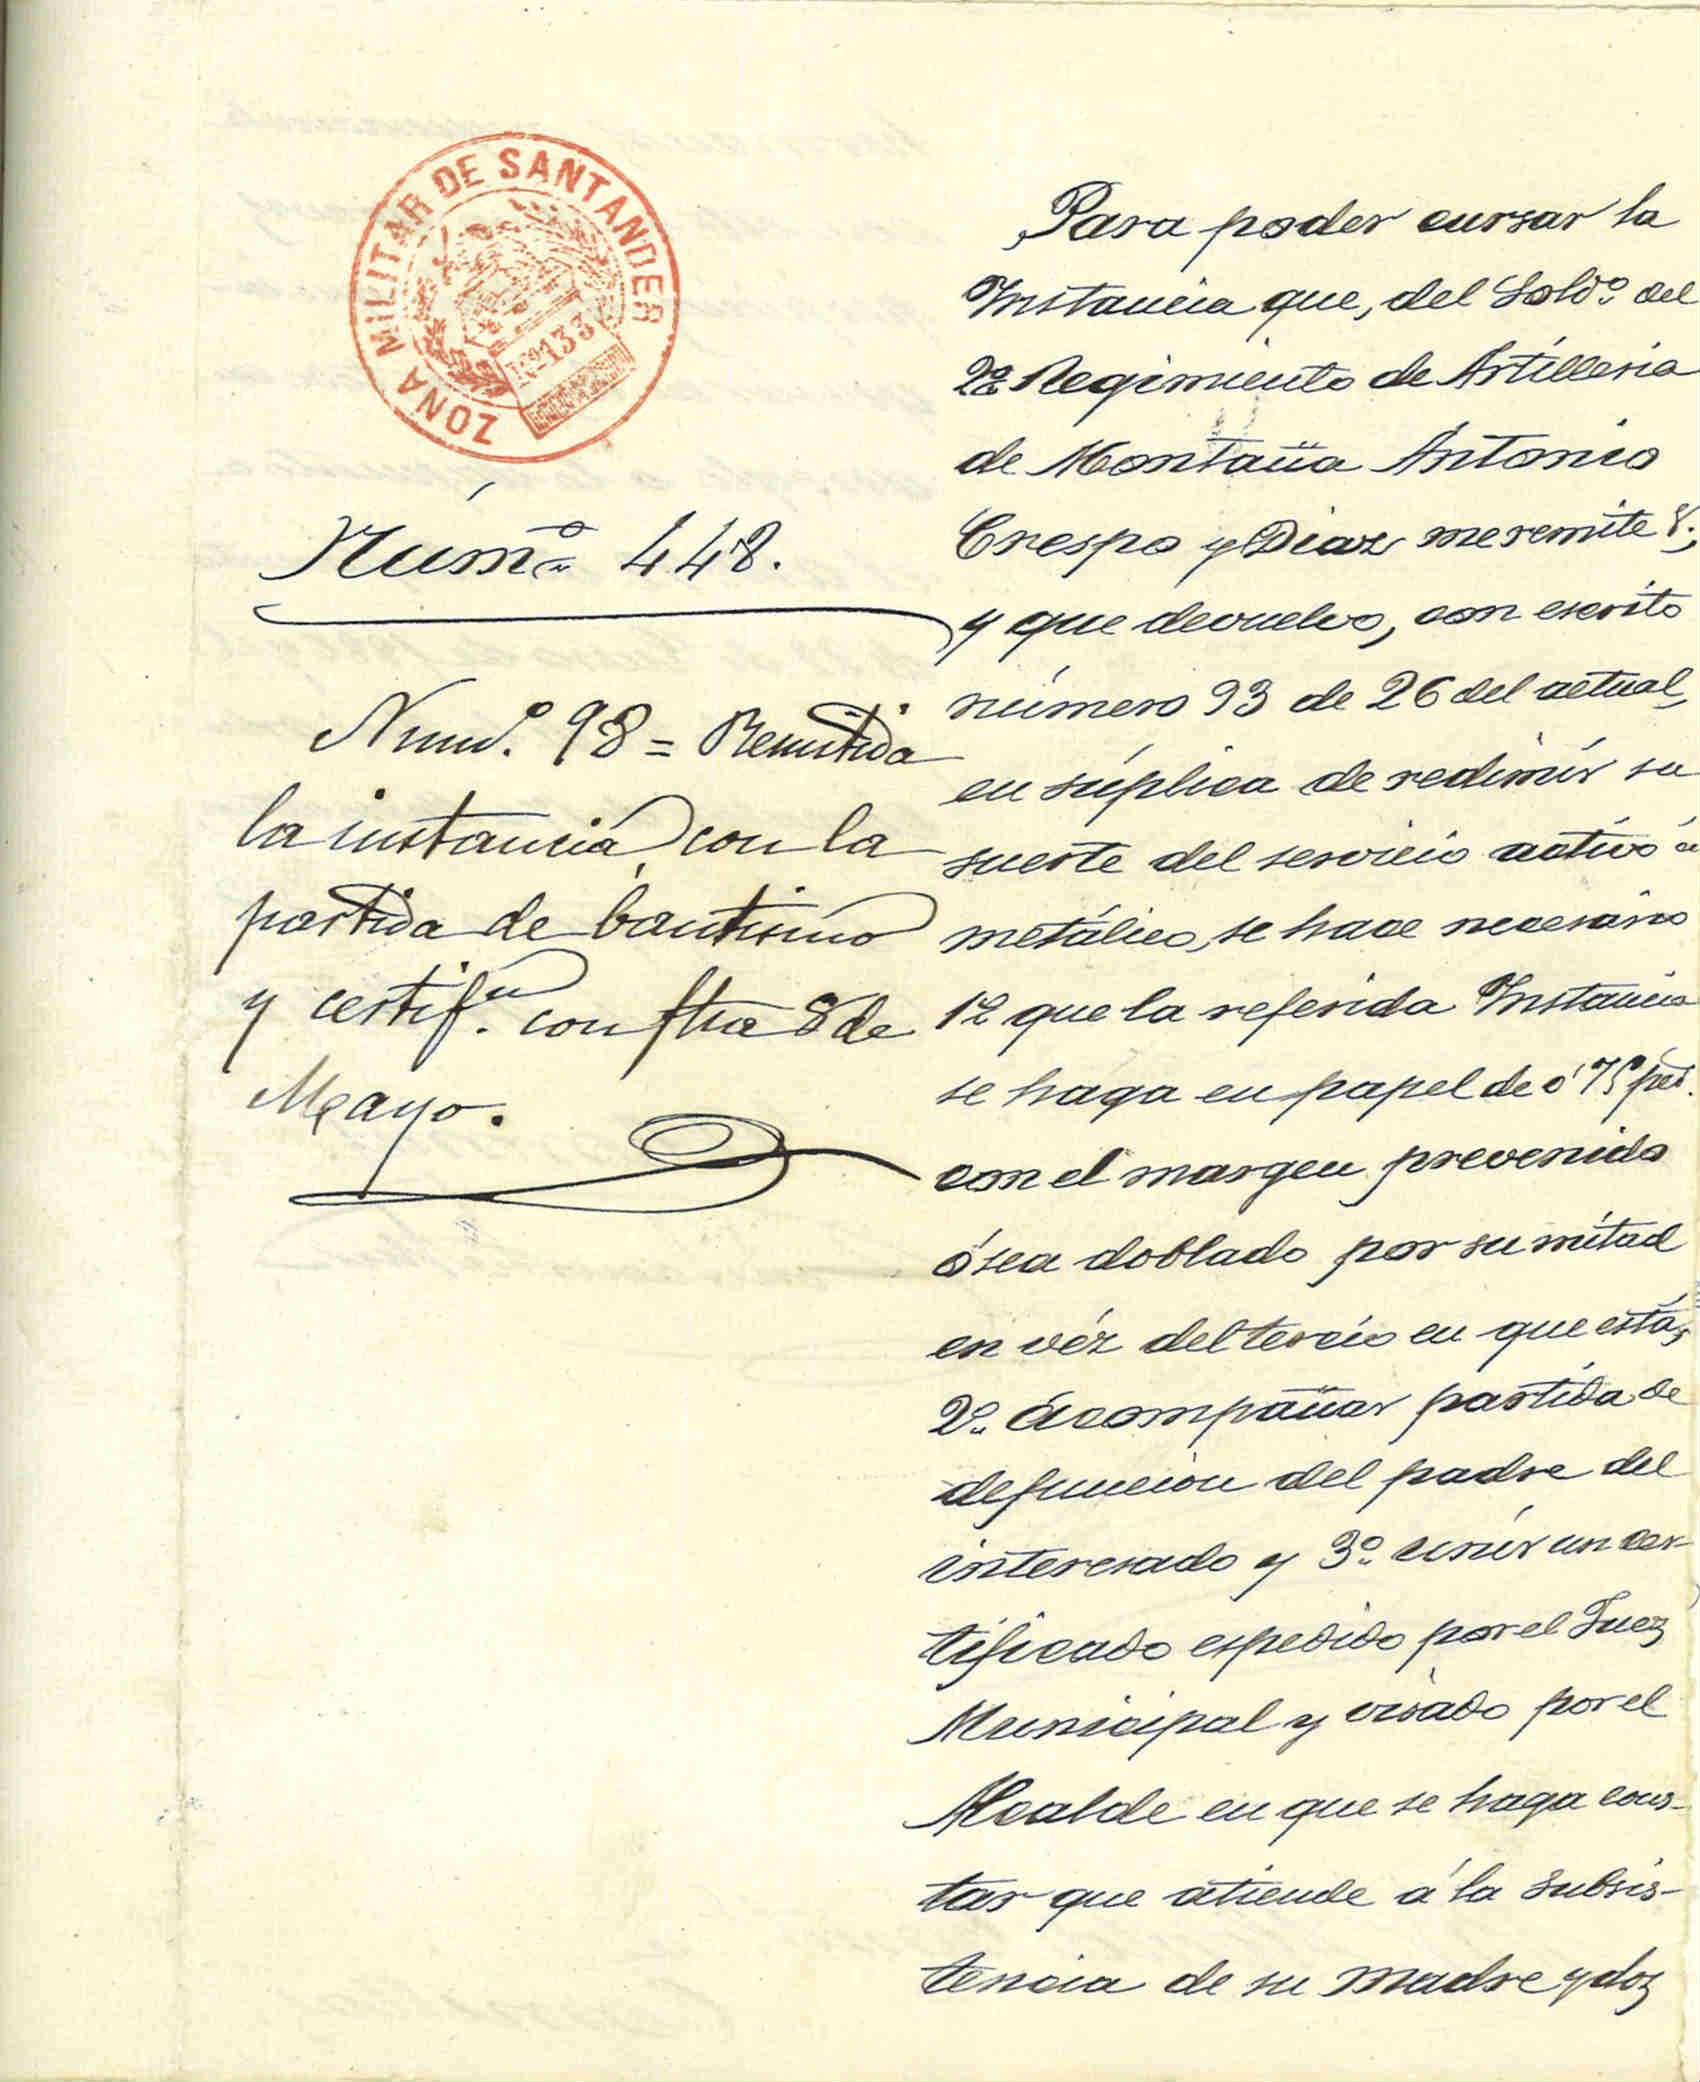 ZONA MILITAR DE SANTANDER
Nº 133
Núm.º 448.
Num.º 98 = Remitida
la instancia con la
partida de bautismo
y certif.on con fha 8 de
Mayo.
Para poder cursar la
Instancia que, del Sold.º del
2º Regimiento de Artilleria
de Montaña Antonio
Crespo y Diaz me remite V.,
y que devuelvo, con escrito
número 93 de 26 del actual,
en súplica de redimir su
suerte del servicio activo á
metálico, se hace necesario
1º que la referida Instancia
se haga en papel de 0'75 pts.
con el margen prevenido
ó sea doblado por su mitad
en véz del tercio en que está,
2º. Acompañar partida de
defuncion del padre del
interesado y 3º. unir un cer-
tificado espedido por el Juez
Municipal y visado por el
Alcalde en que se haga cons-
tar que atiende á la subsis-
tencia de su madre y dos